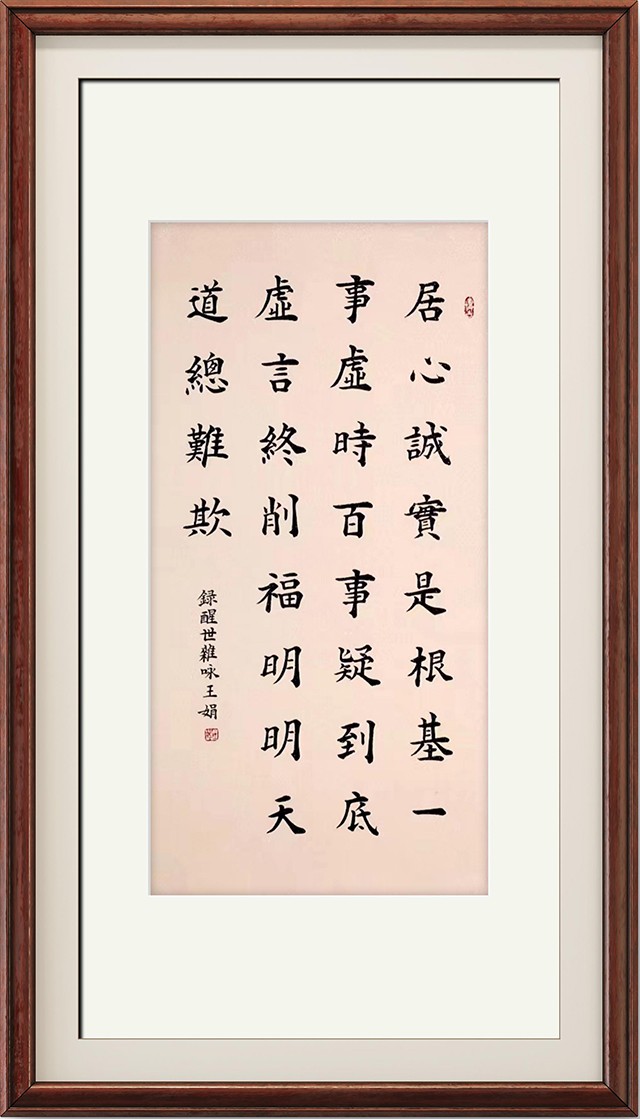 居心誠實是根基一
事虛時百事疑到底
虛言終削福明明天
道總難欺
録醒世雜咏王娟